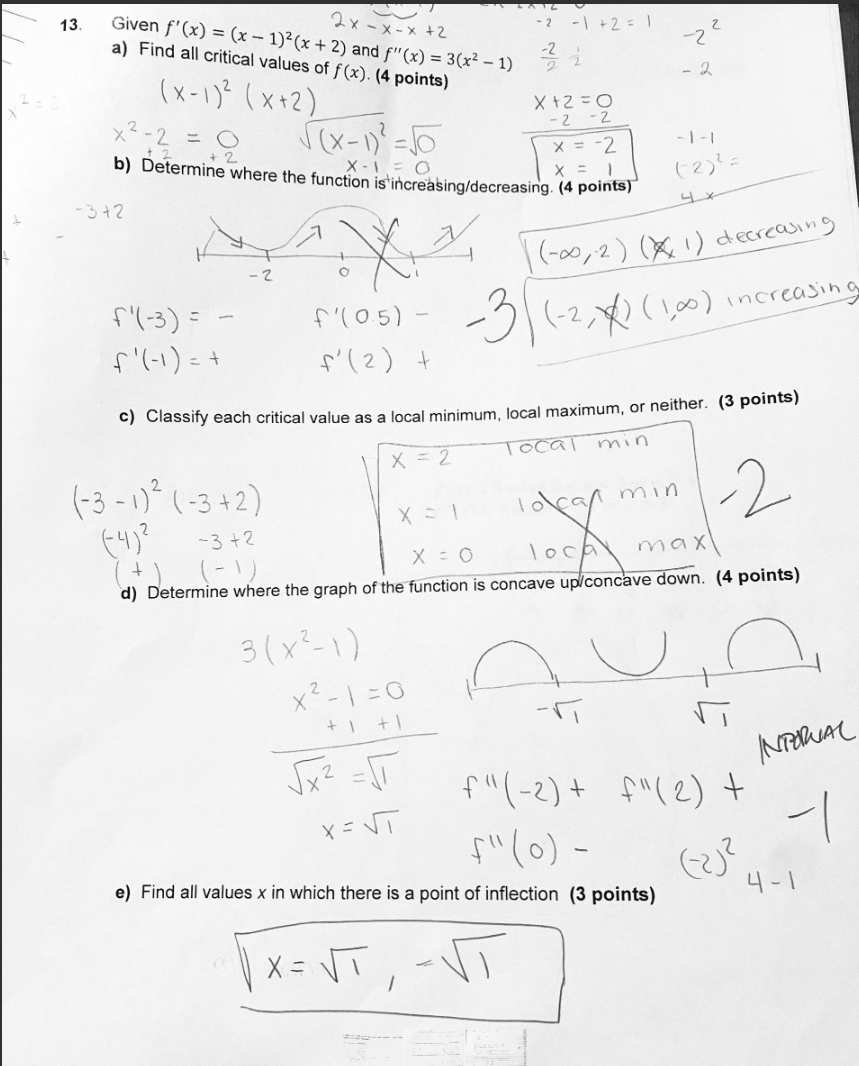 2x - x - x + 2
-2 -1 +2 = 1
-2²
13. Given f'(x) = (x − 1)²(x + 2) and f''(x) = 3(x² − 1)
-2/2 1/2
- 2
a) Find all critical values of f(x). (4 points)
(x-1)² (x+2)
x+2 = 0
-2 -2
x² = 2
x² - 2 = 0
+2 +2
√(x-1)² = √0
x - 1 = 0
x = -2
x = 1
-1-1
(-2)² =
4
b) Determine where the function is increasing/decreasing. (4 points)
-3+2
-2 0 1
(-∞,-2) ( , 1) decreasing
(-2, ) (1,∞) increasing
-3
f'(-3) = - f'(0.5) -
f'(-1) = + f'(2) +
c) Classify each critical value as a local minimum, local maximum, or neither. (3 points)
x = 2 local min
x = 1 local min
x = 0 local max
-2
(-3 - 1)² (-3 + 2)
(-4)² -3 + 2
(+) (-1)
d) Determine where the graph of the function is concave up/concave down. (4 points)
3(x²-1)
x² - 1 = 0
+1 +1
√x² = √1
x = √1
-√1 √1
INTERVAL
f''(-2) + f''(2) +
-1
f''(0) -
(-2)²
4-1
e) Find all values x in which there is a point of inflection (3 points)
x = √1 , -√1